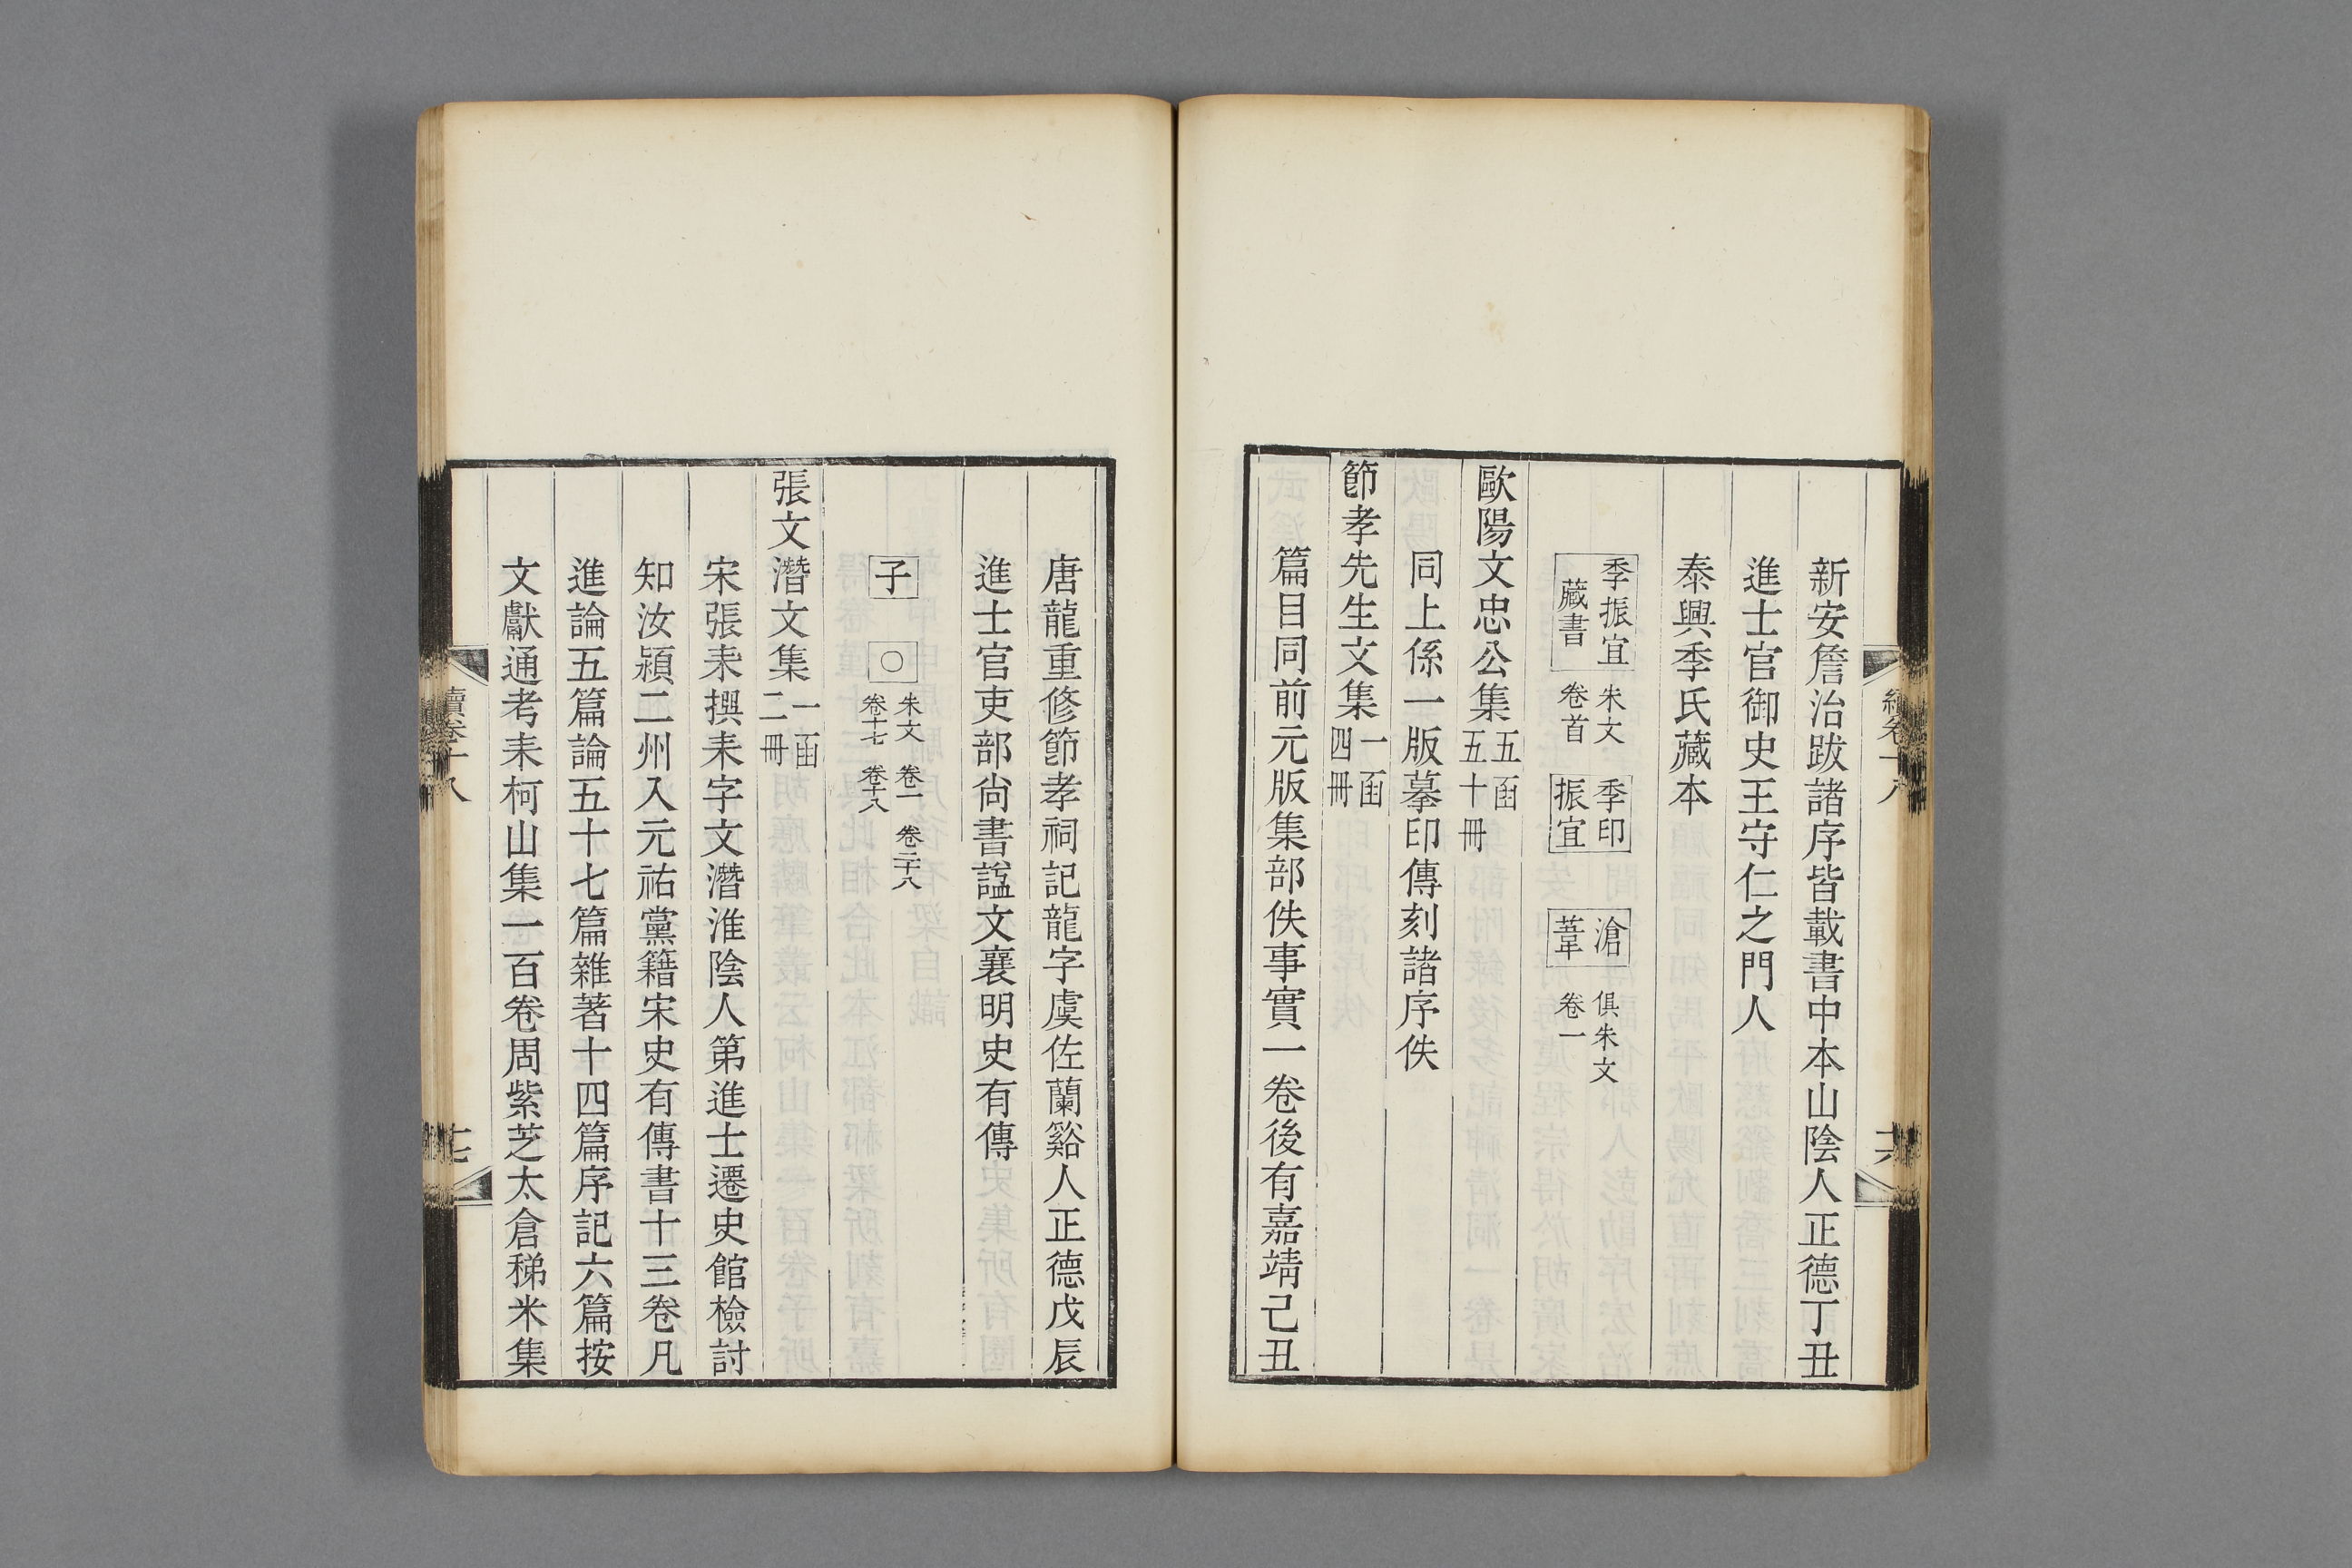 新安詹治跋諸序皆載書中本山陰人正德丁丑
進士官御史王守仁之門人
泰興季氏藏本
季振宜藏書 朱文卷首 季印振宜 滄葦 俱朱文卷一
歐陽文忠公集 五函五十冊
同上係一版摹印傳刻諸序佚
節孝先生文集 一函四冊
篇目同前元版集部佚事實一卷後有嘉靖己丑
唐龍重修節孝祠記龍字虞佐蘭谿人正德戊辰
進士官吏部尙書諡文襄明史有傳
子 〇 朱文 卷一 卷二十八 卷十七 卷十八
張文潛文集 一函二冊
宋張耒撰耒字文潛淮陰人第進士遷史館檢討
知汝潁二州入元祐黨籍宋史有傳書十三卷凡
進論五篇論五十七篇雜著十四篇序記六篇按
文獻通考耒柯山集一百卷周紫芝太倉稊米集
續卷十八